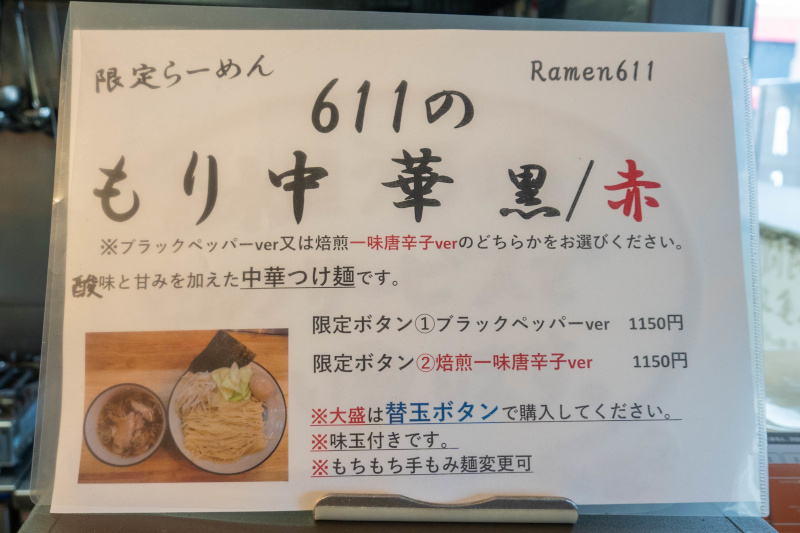 限定らーめん
Ramen611
611の
もり中華 黒/赤
※ブラックペッパーver又は焙煎一味唐辛子verのどちらかをお選びください。
酸味と甘みを加えた中華つけ麺です。
限定ボタン①ブラックペッパーver 1150円
限定ボタン②焙煎一味唐辛子ver 1150円
※大盛は替玉ボタンで購入してください。
※味玉付きです。
※もちもち手もみ麺変更可